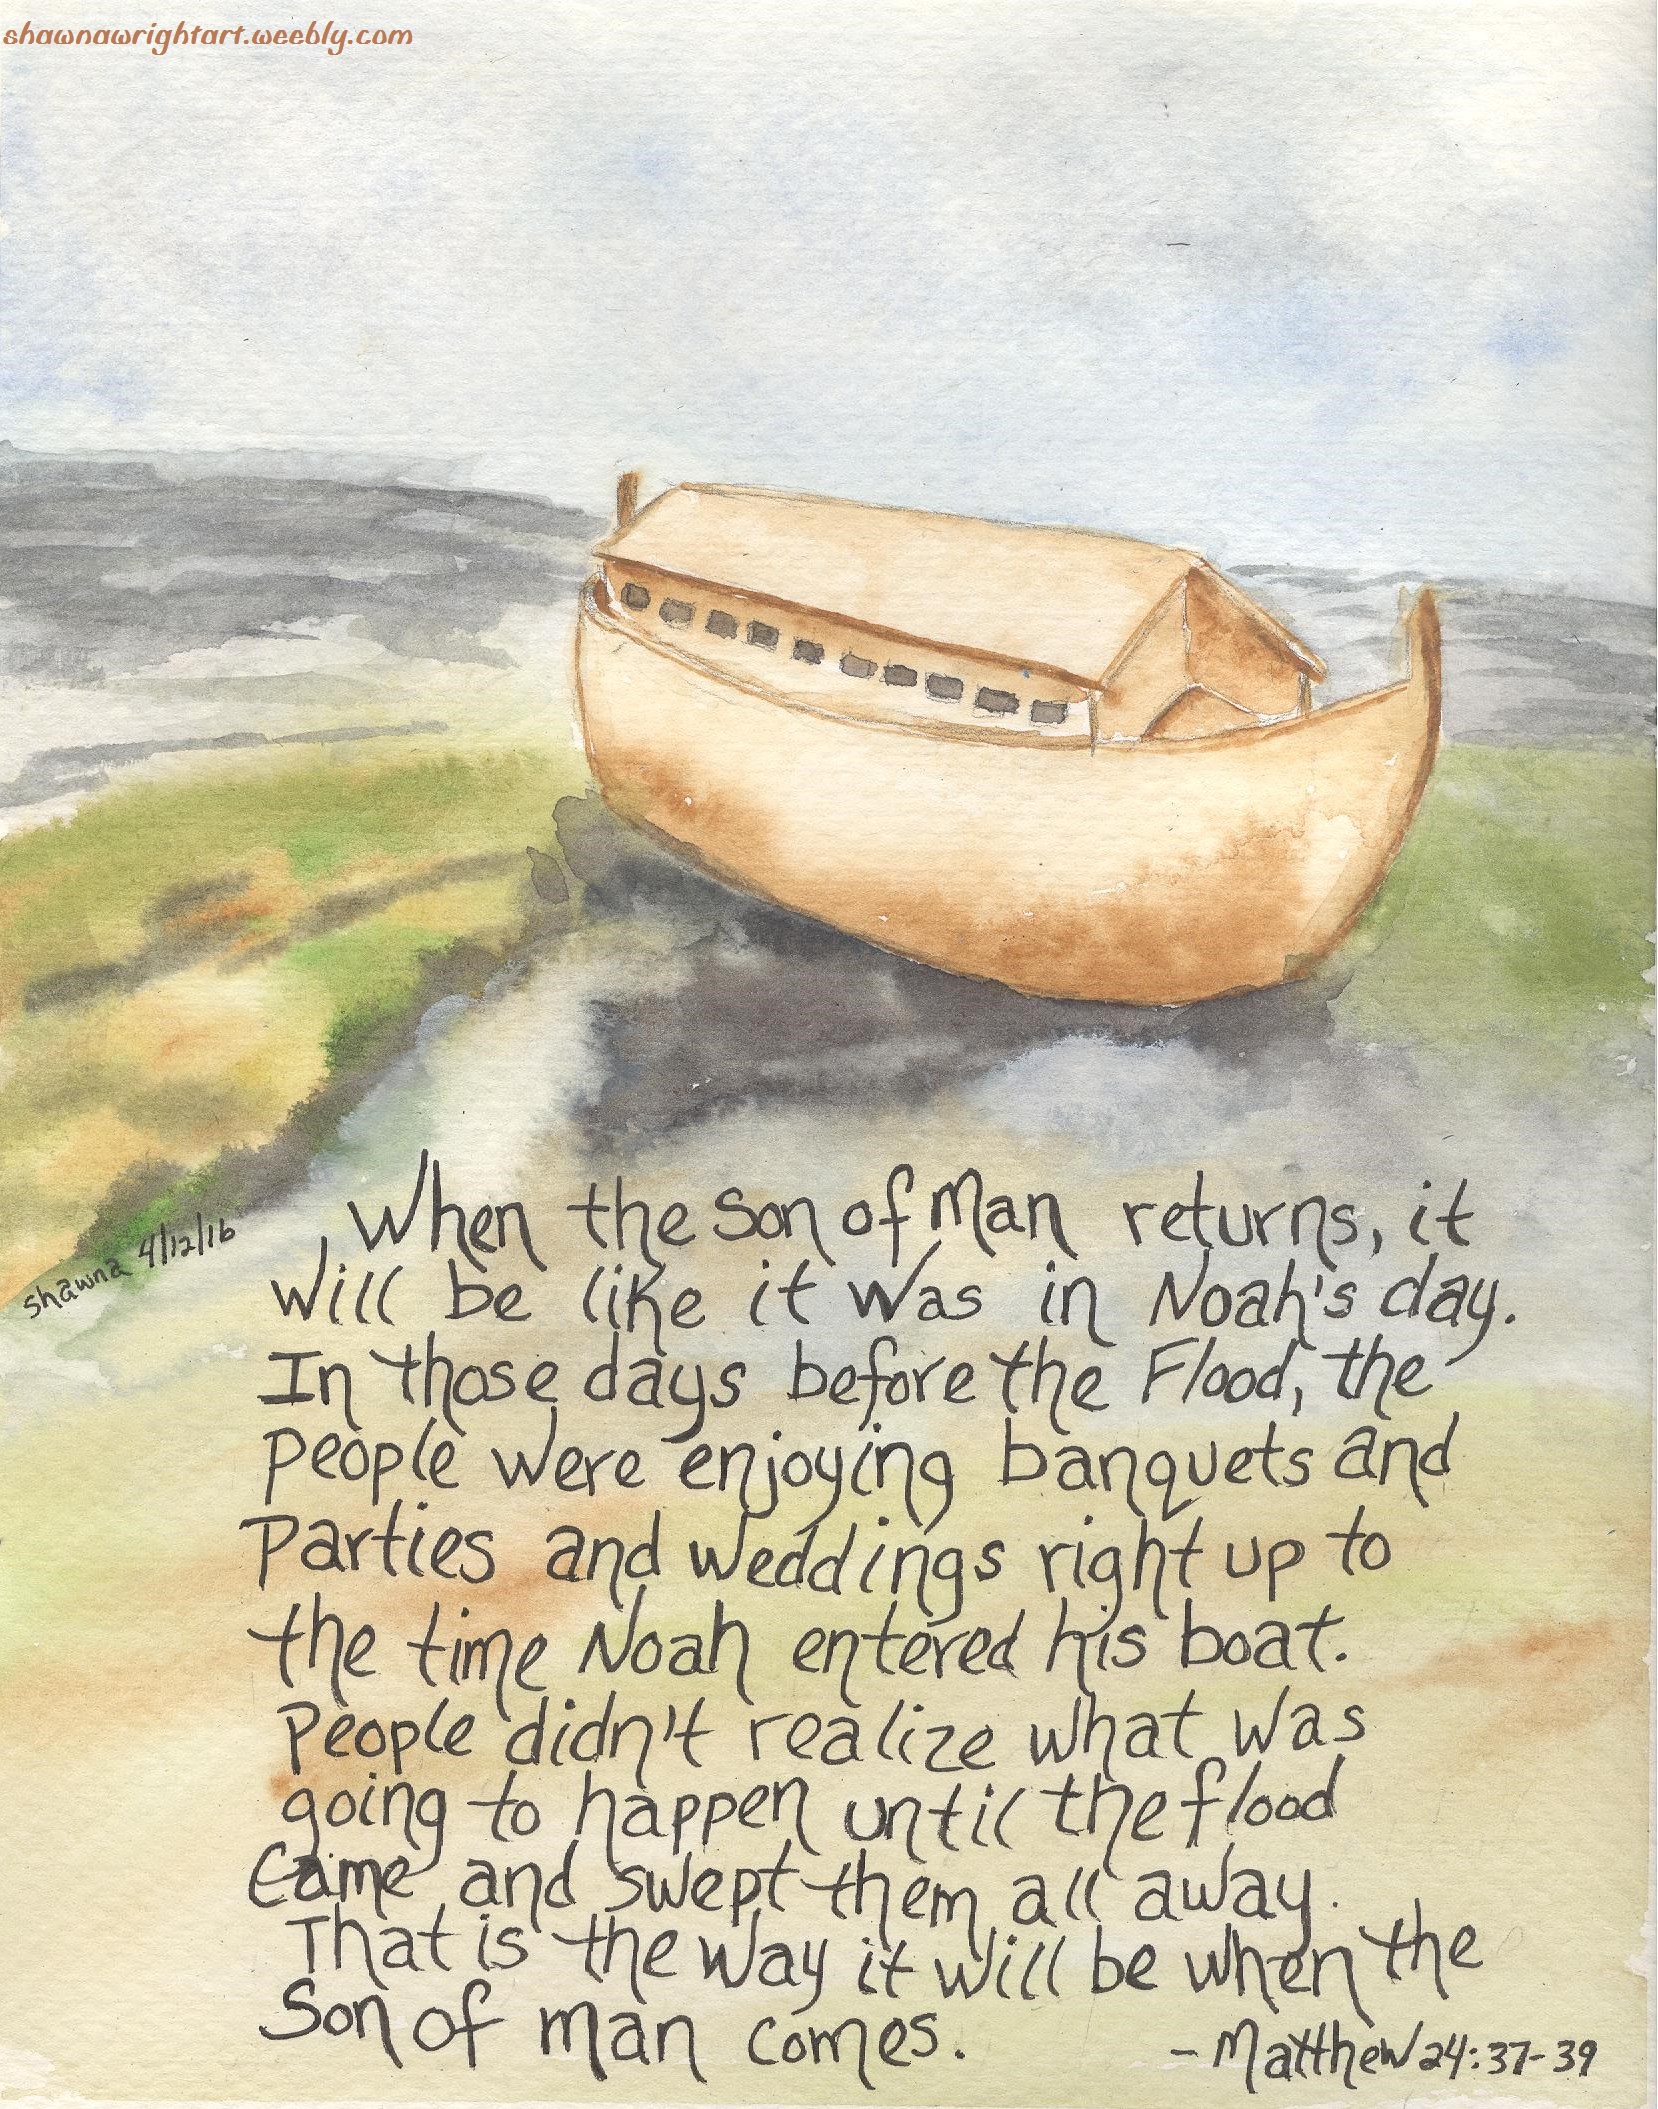 shawnawrightart.weebly.com
When the Son of Man returns, it
will be like it was in Noah's day.
In those days before the Flood, the
People were enjoying banquets and
Parties and weddings right up to
the time Noah entered his boat.
People didn't realize what was
going to happen until the flood
Came and swept them all away.
That is the way it will be when the
Son of man comes.
- Matthew 24:37-39
shawna 4/12/16